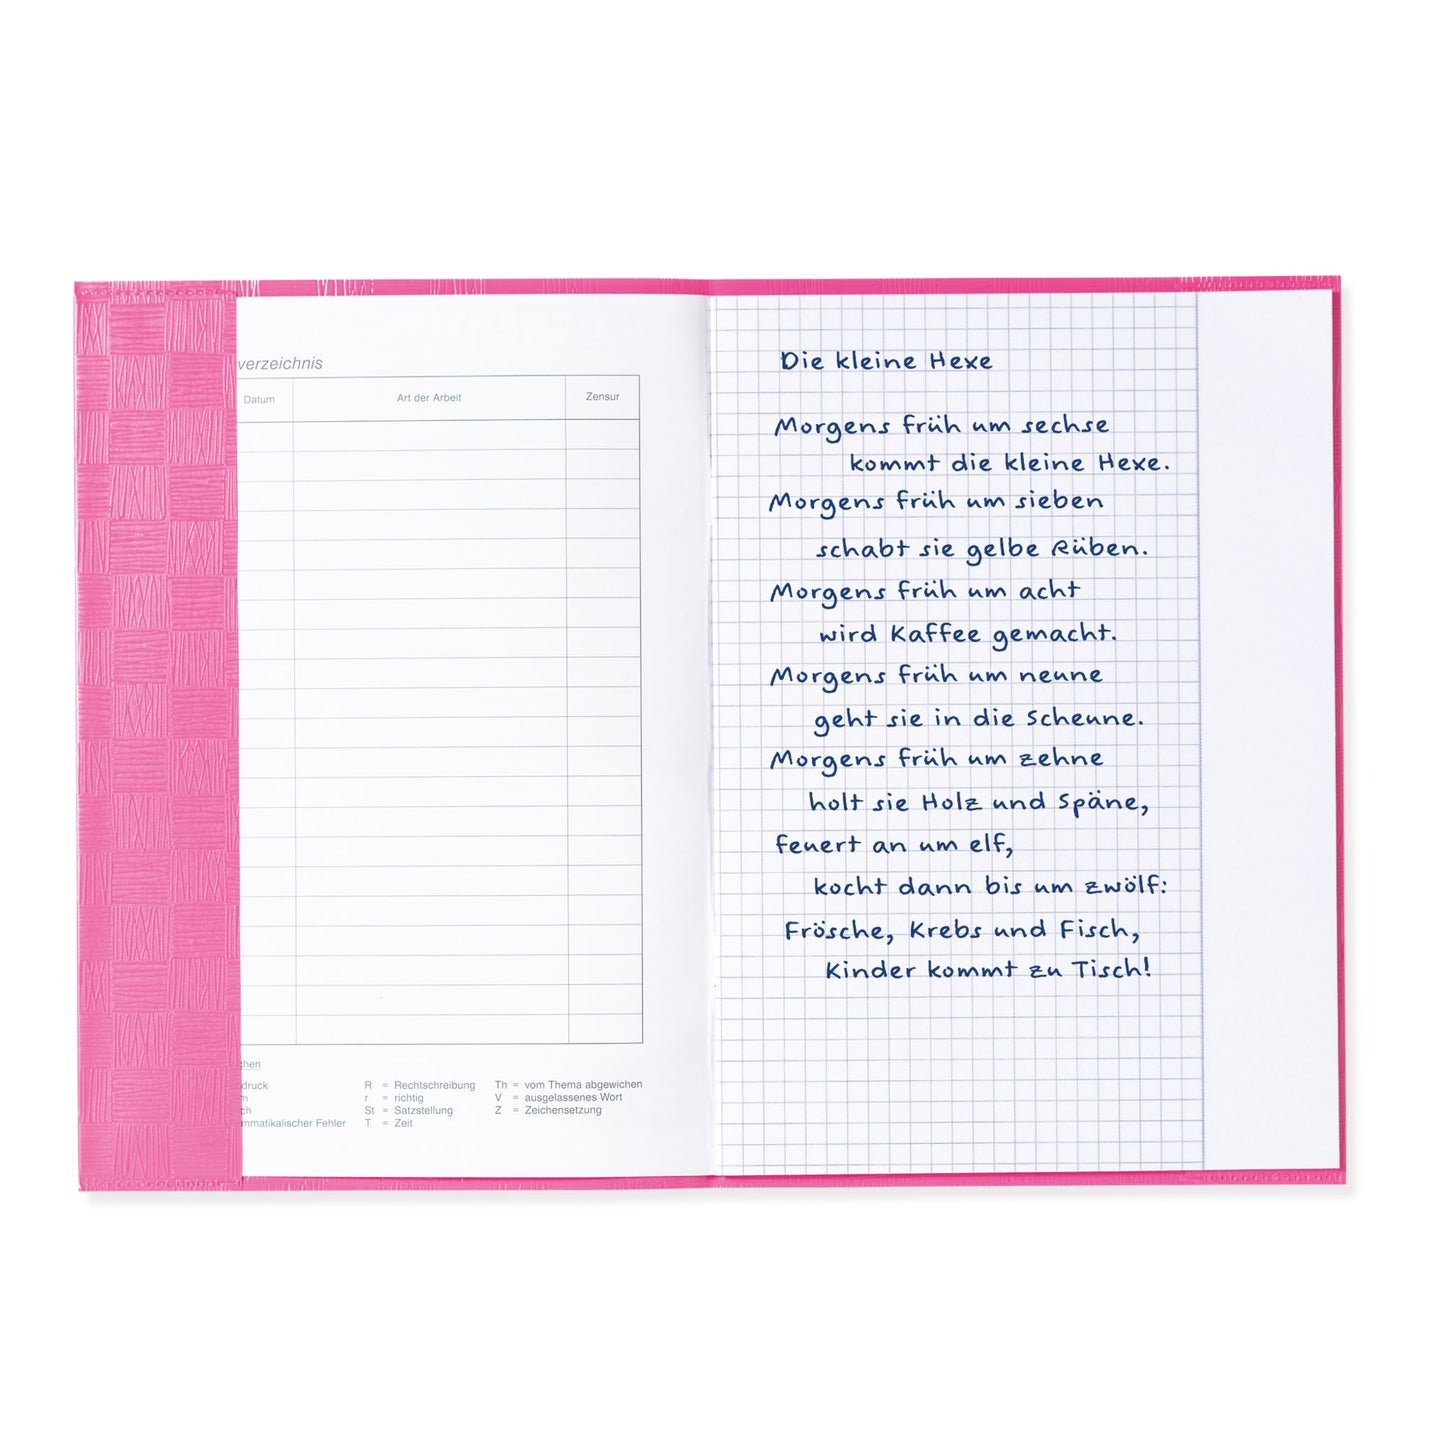 verzeichnis
Datum Art der Arbeit Zensur
R = Rechtschreibung
r = richtig
St = Satzstellung
T = Zeit
Th = vom Thema abgewichen
V = ausgelassenes Wort
Z = Zeichensetzung
Die kleine Hexe
Morgens früh um sechse
kommt die kleine Hexe.
Morgens früh um sieben
schabt sie gelbe Rüben.
Morgens früh um acht
wird Kaffee gemacht.
Morgens früh um neune
geht sie in die Scheune.
Morgens früh um zehne
holt sie Holz und Späne,
feuert an um elf,
kocht dann bis um zwölf:
Frösche, Krebs und Fisch,
Kinder kommt zu Tisch!